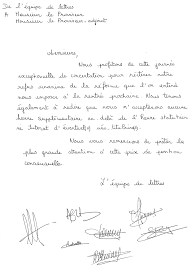 De l'équipe de lettres
A Monsieur le Proviseur
Monsieur le Proviseur-adjoint
Messieurs,
Nous profitons de cette journée
exceptionnelle de concertation pour réitérer notre
refus unanime de la réforme que l'on entend
nous imposer à la rentrée prochaine. Nous tenons
également à redire que nous n'accepterons aucune
heure supplémentaire au-delà de l'heure statutaire
dans l'intérêt d'éventuel(s) titulaires.
Nous vous remercions de prêter la
plus grande attention à cette prise de position
consensuelle.
L'équipe de lettres